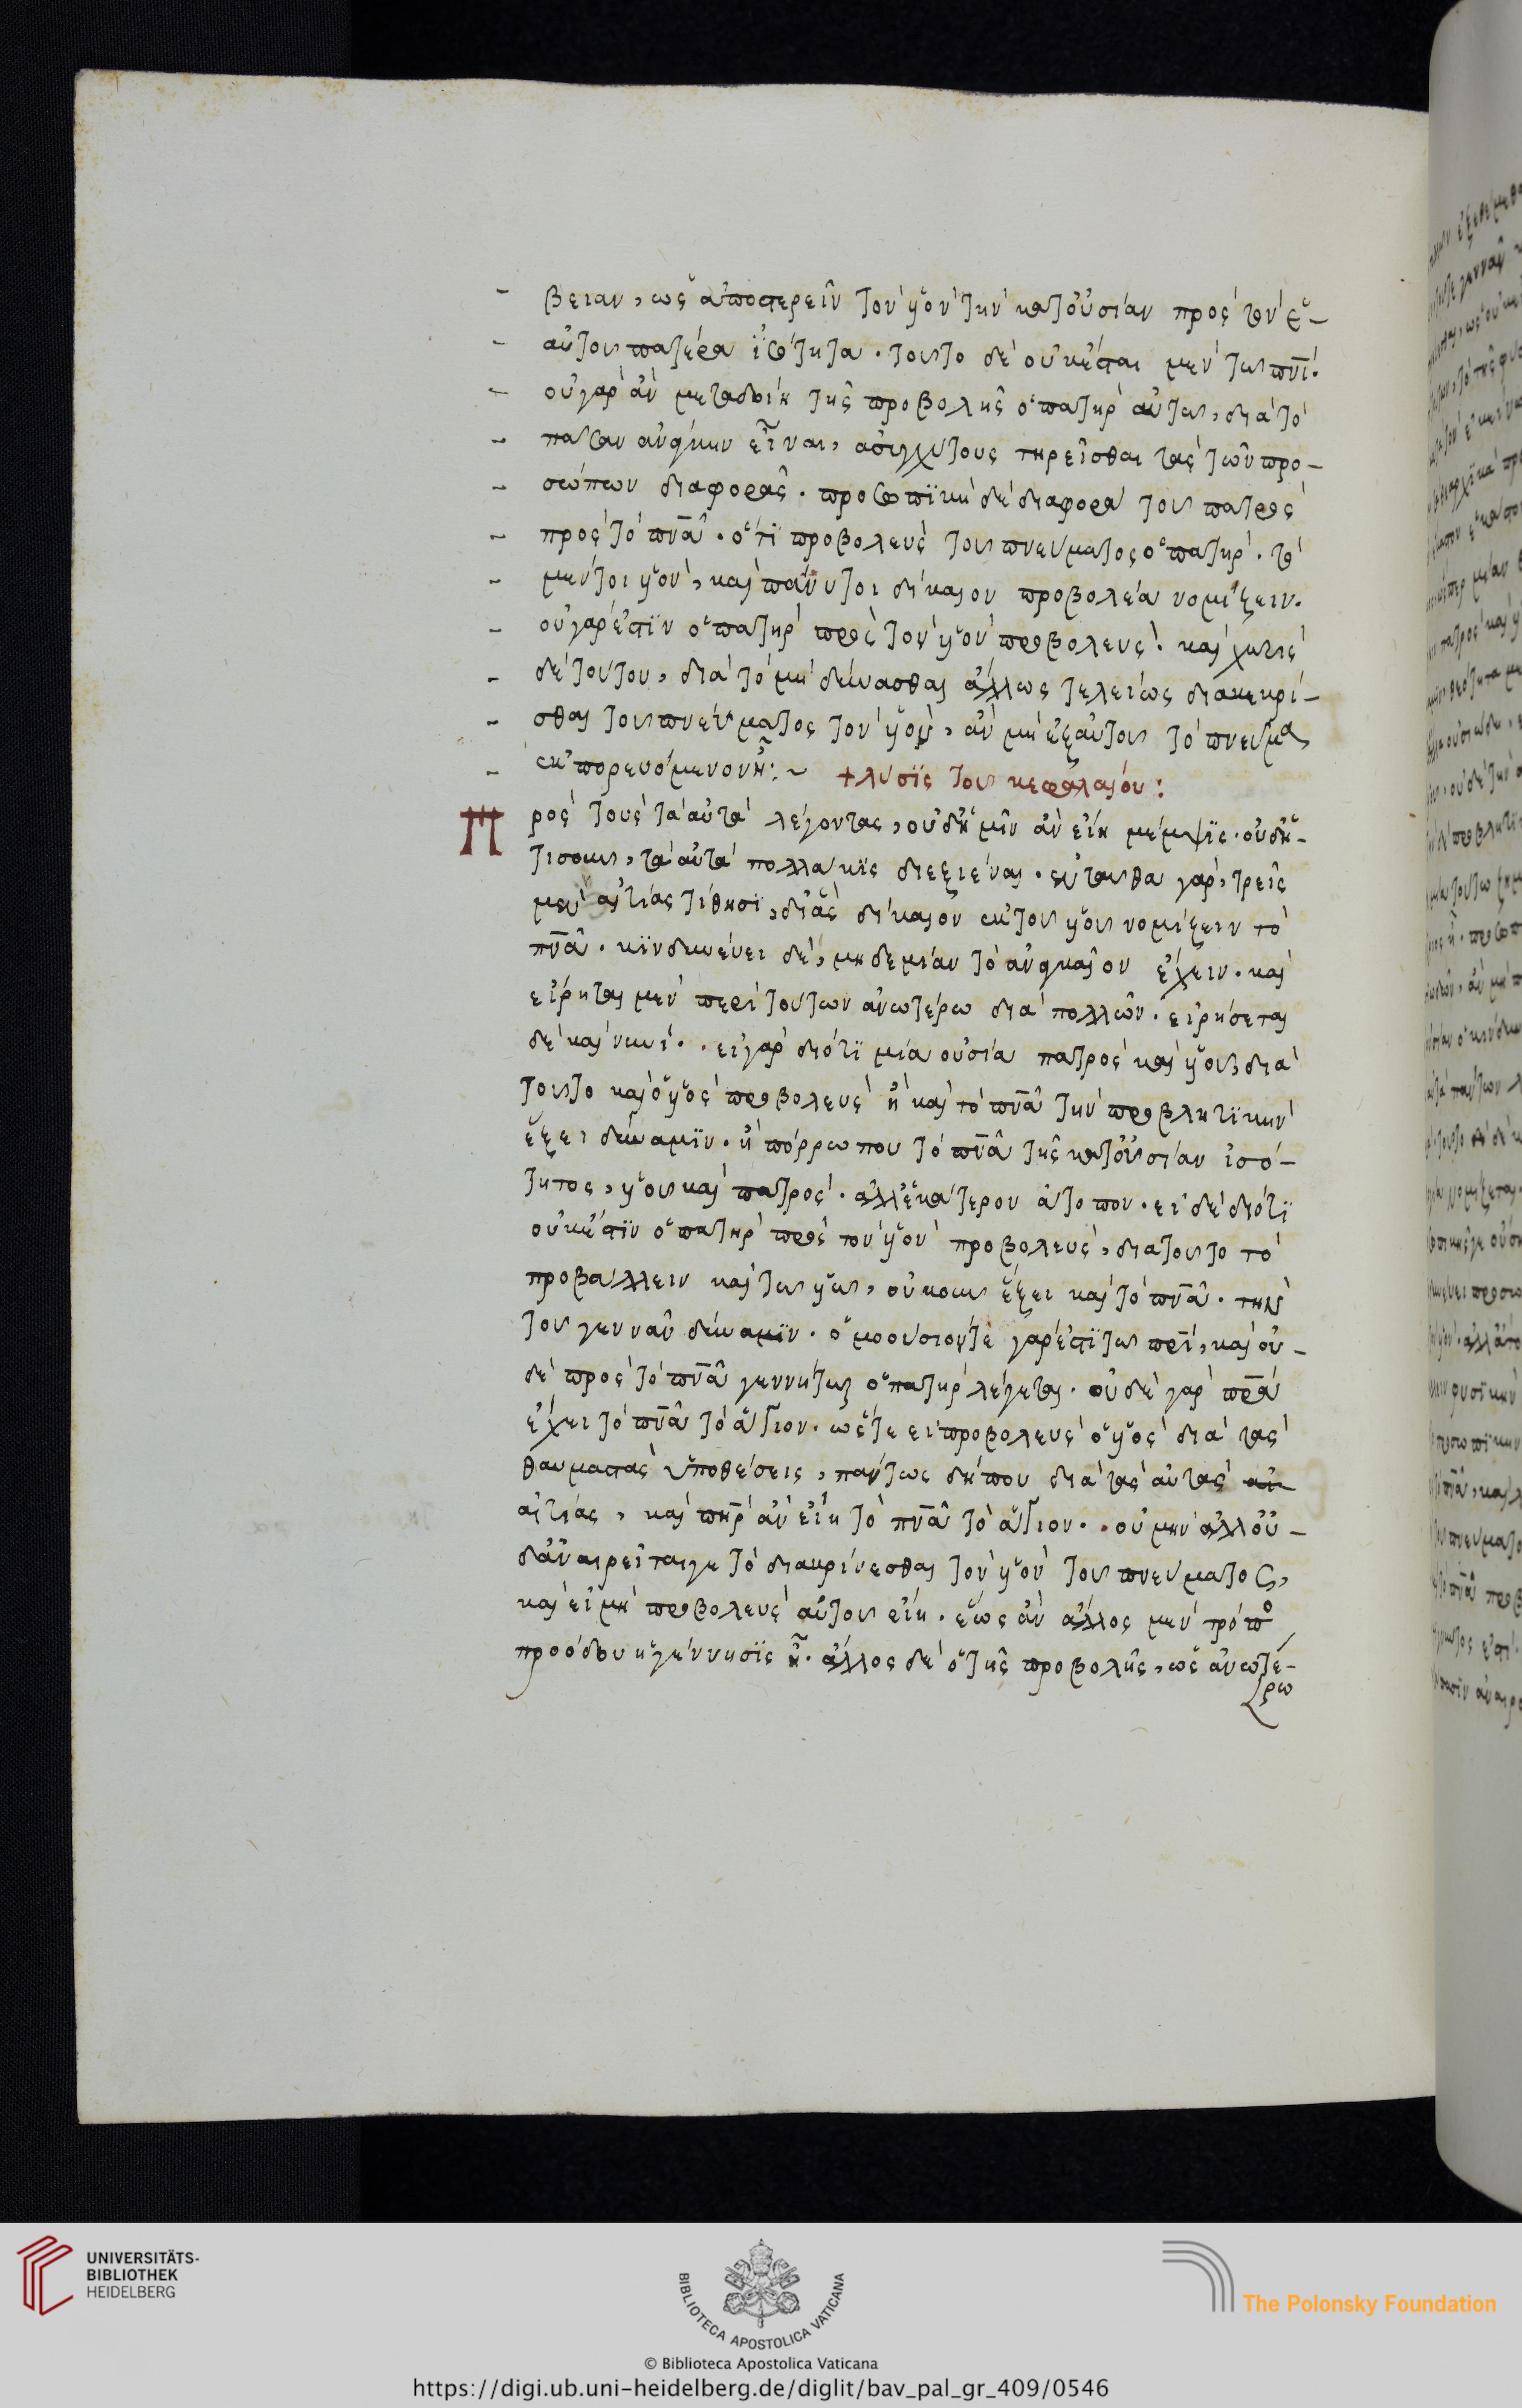 βειαν, ὡς ἀποστερεῖν τὸν ὑὸν τὴν κατ' οὐσίαν πρὸς τὸν ἑ-
αὐτοῦ πατέρα ἰσότητα. τοῦτο δὲ οὐκ ἔσται μὲν τῷ πν̅ι.
οὐ γὰρ ἂν μεταδοίη τῆς προβολῆς ὁ πατὴρ αὐτῷ, διὰ τὸ
πᾶσαν ἀνάγκην εἶναι, ἀσυγχύτους τηρεῖσθαι τὰς τῶν προ-
σώπων διαφοράς. προσωπικὴ δὲ διαφορὰ τοῦ πατρὸς
πρὸς τὸ πν̅α. ὅτι προβολεὺς τοῦ πνεύματος ὁ πατὴρ. τὸ
μέντοι ὑὸν, καὶ πάνυ τοι δίκαιον προβολέα νομίζειν.
οὐ γάρ ἐστιν ὁ πατὴρ πρὸς τὸν ὑὸν προβολεύς. καὶ χωρὶς
δὲ τούτου, διὰ τὸ μὴ δύνασθαι ἄλλως τελείως διακεκρί-
σθαι τοῦ πνεύματος τὸν ὑὸν, ἂν μὴ ἐξ αὐτοῦ τὸ πνεῦμα
ἐκπορευόμενον ᾖ:~ + λύσις τοῦ κεφαλαίου:
Πρὸς τοὺς τὰ αὐτὰ λέγοντας, οὐδ' ἡμῖν ἂν εἴη μέμψις. οὐδ' ἡ-
τισοῦν, τὰ αὐτὰ πολλάκις διεξιέναι. ἐνταῦθα γὰρ, τρεῖς
μὲν αἰτίας τίθησι, δι' ἃς δίκαιον ἐκ τοῦ ὑοῦ νομίζειν τὸ
πν̅α. κινδυνεύει δὲ, μηδεμίαν τὸ ἀναγκαῖον ἔχειν. καὶ
εἴρηται μὲν περὶ τούτων ἀνωτέρω διὰ πολλῶν. εἰρήσεται
δὲ καὶ νυνί. εἰ γὰρ διότι μία οὐσία πατρὸς καὶ ὑοῦ, διὰ
τοῦτο καὶ ὁ ὑὸς προβολεὺς ἢ καὶ τὸ πν̅α τὴν προβλητικὴν
ἕξει δύναμιν. ἢ πόρρω που τὸ πν̅α τῆς κατ' οὐσίαν ἰσό-
τητος, ὑοῦ καὶ πατρὸς. ἀλλ' ἑκάτερον ἄτοπον. εἰ δὲ διότι
οὐκ ἔστιν ὁ πατὴρ πρὸς τὸν ὑὸν προβολεὺς, διὰ τοῦτο τὸ
προβάλλειν καὶ τῷ ὑῷ, οὐκοῦν ἕξει καὶ τὸ πν̅α. τὴν
τοῦ γεννᾶν δύναμιν. ὁμοούσιόν τε γάρ ἐστι τῷ πρ̅ι, καὶ οὐ-
δὲ πρὸς τὸ πν̅α γεννήτωρ ὁ πατὴρ λέγεται. οὐδὲ γὰρ πρ̅α
ἔχει τὸ πν̅α τὸ ἅγιον. ὥστε εἰ προβολεὺς ὁ ὑὸς διὰ τὰς
θαυμαστὰς ὑποθέσεις, πάντως δήπου διὰ τὰς αὐτὰς
αἰτίας, καὶ πη̅ρ ἂν εἴη τὸ πν̅α τὸ ἅγιον. οὐ μὴν ἀλλ' οὐ-
δ' ἀναιρεῖται γε τὸ διακρίνεσθαι τὸν ὑὸν τοῦ πνεύματος,
καὶ εἰ μὴ προβολεὺς αὐτοῦ εἴη. ἕως ἂν ἄλλος μὲν τρόπο
προόδου ἡ γέννησις ᾖ. ἄλλος δὲ ὁ τῆς προβολῆς, ὡς ἀνωτέ-
ρω
UNIVERSITÄTS-
BIBLIOTHEK
HEIDELBERG
BIBLIOTECA APOSTOLICA VATICANA
The Polonsky Foundation
© Biblioteca Apostolica Vaticana
https://digi.ub.uni-heidelberg.de/diglit/bav_pal_gr_409/0546